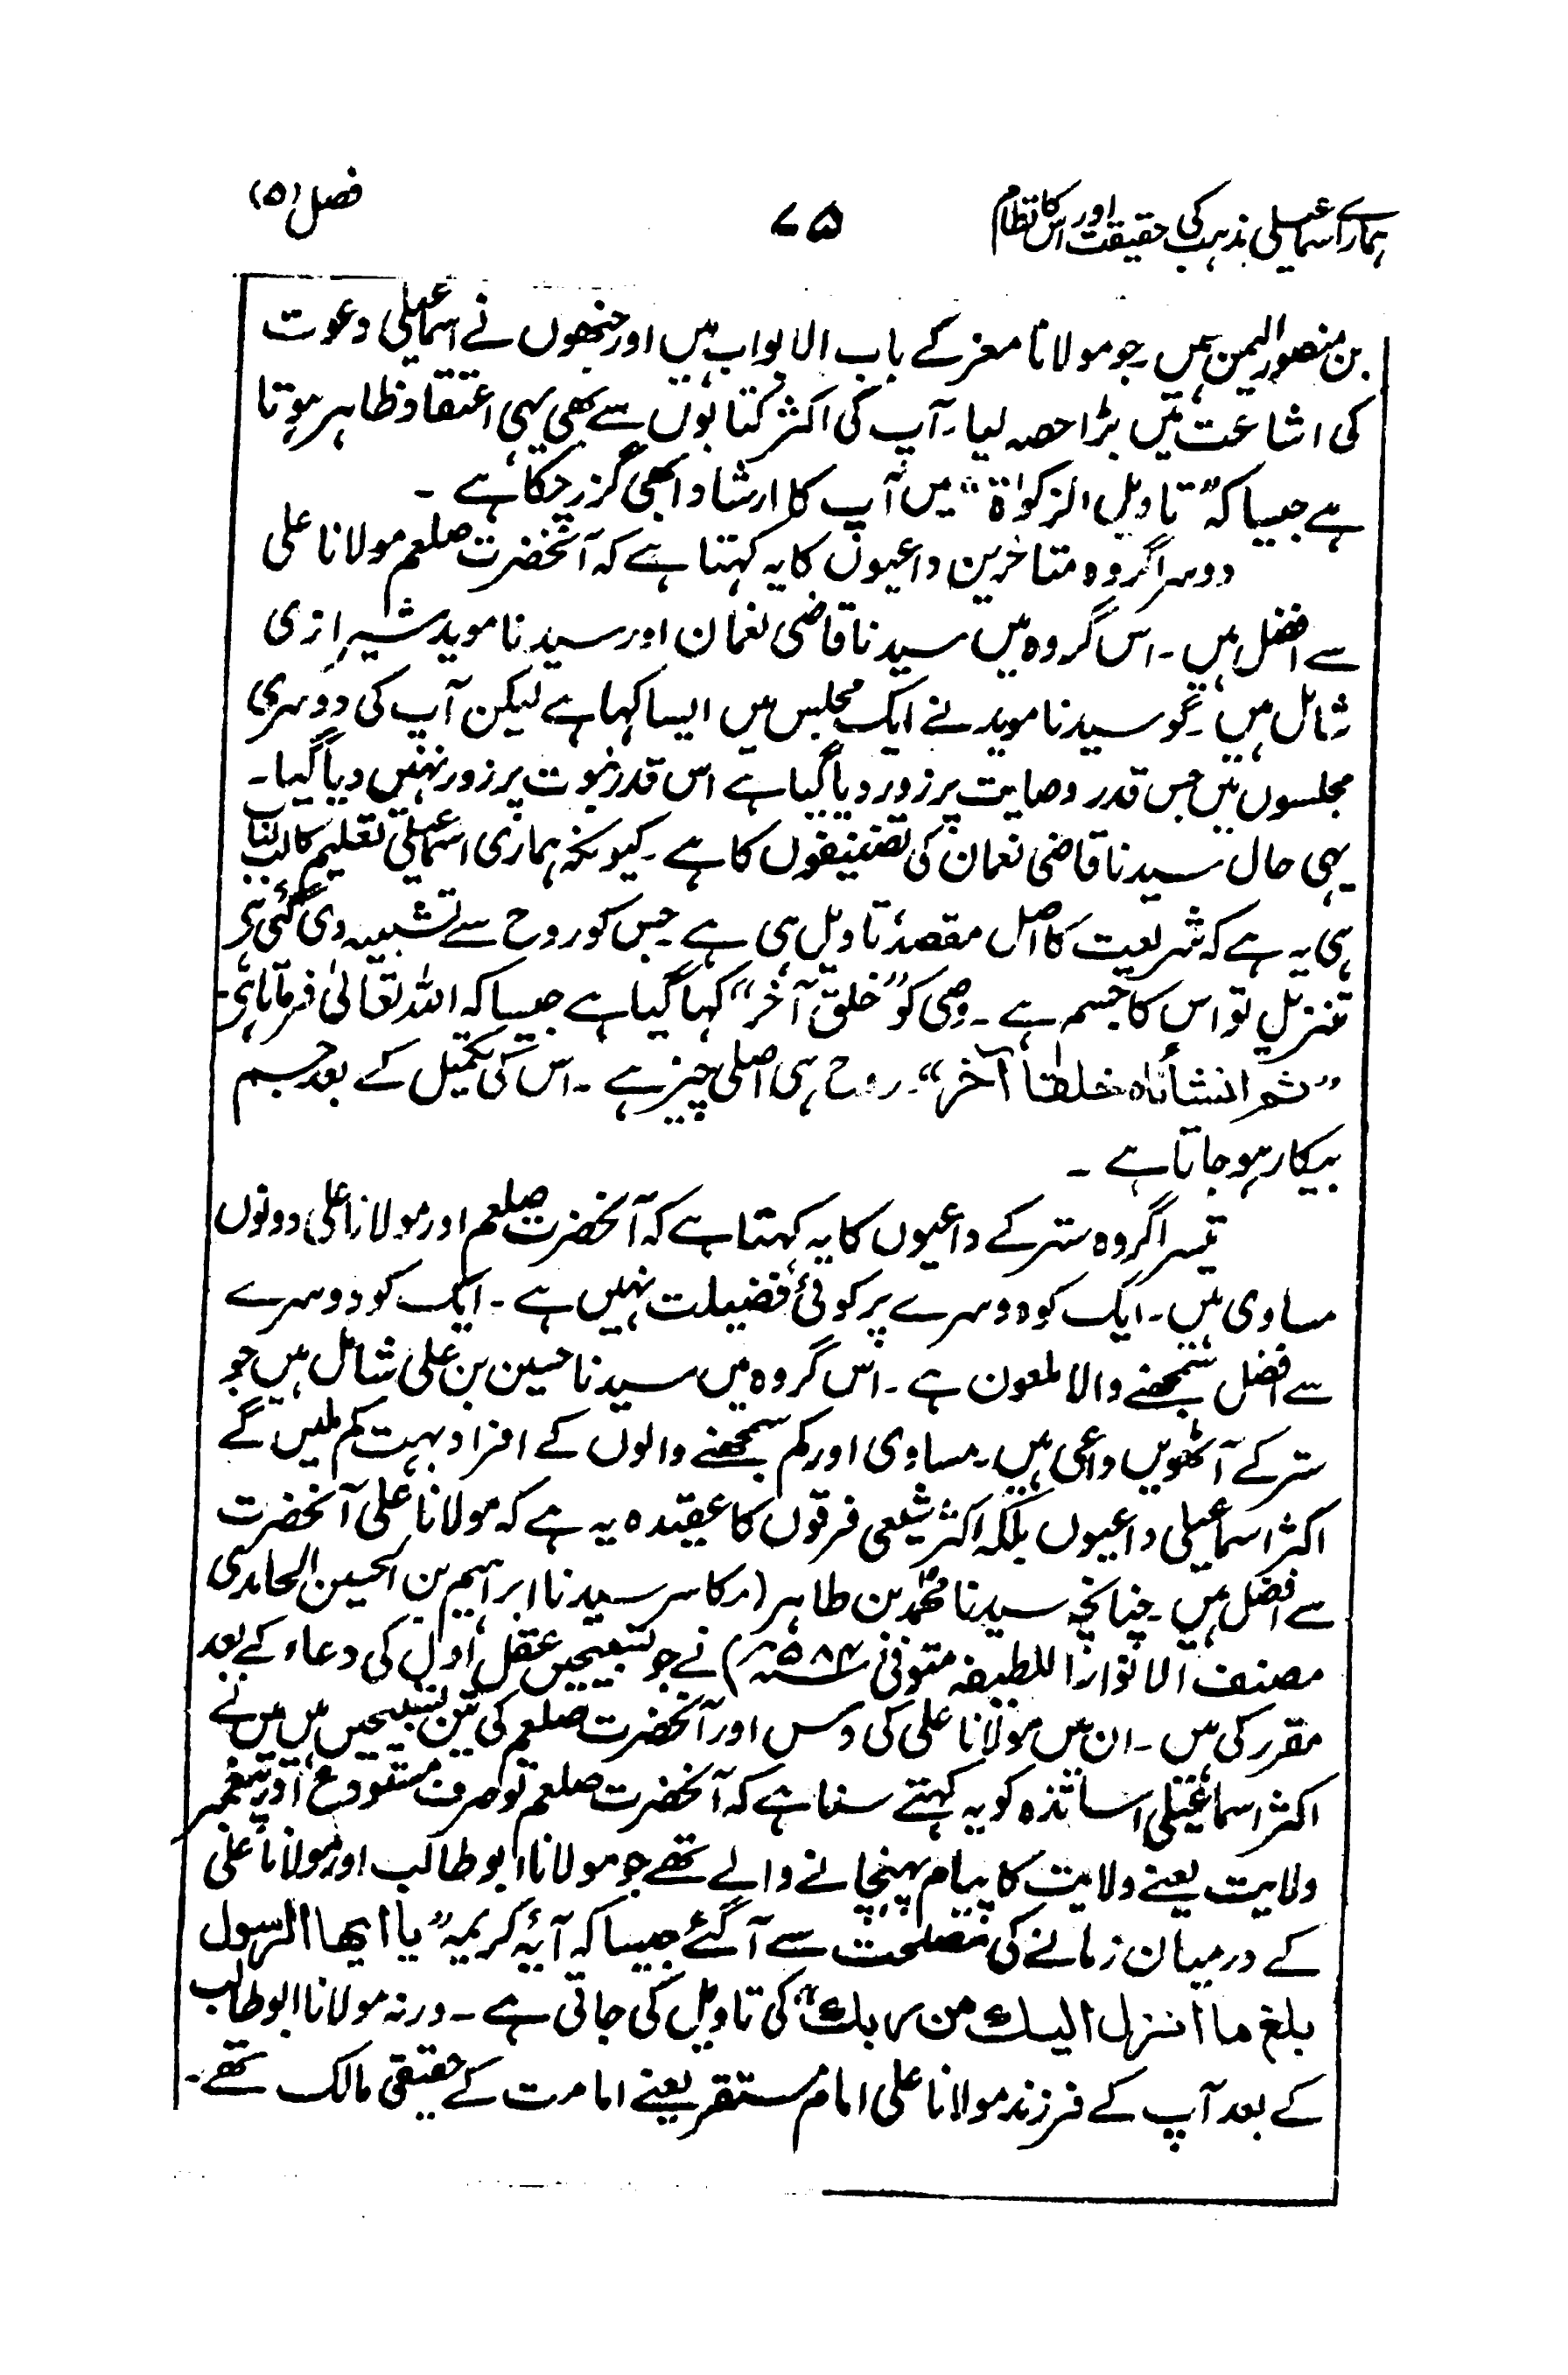 ہمارے اسماعیلی مذہب کی حقیقت اور اس کا نظام
۷۵
فصل (۵)
بن منصور الیمن ہیں۔ جو مولانا معز کے باب الابواب ہیں اور جنھوں نے اسماعیلی دعوت
کی اشاعت میں بڑا حصہ لیا۔ آپ کی اکثر کتابوں سے بھی یہی اعتقاد ظاہر ہوتا
ہے جیسا کہ "تاویل الزکوٰۃ" میں آپ کا ارشاد ابھی گزر چکا ہے ۔
دوسرا گروہ متاخرین داعیوں کا یہ کہتا ہے کہ آنحضرت صلعم مولانا علی
سے افضل ہیں۔ اس گروہ میں سیدنا قاضی نعمان اور سیدنا موید شیرازی
شامل ہیں۔ گو سیدنا موید نے ایک مجلس میں ایسا کہا ہے لیکن آپ کی دوسری
مجلسوں میں جس قدر وصایت پر زور دیا گیا ہے اس قدر نبوت پر زور نہیں دیا گیا۔
یہی حال سیدنا قاضی نعمان کی تصنیفوں کا ہے۔ کیونکہ ہماری اسماعیلی تعلیم کا لب لباب
ہی یہ ہے کہ شریعت کا اصل مقصد تاویل ہی ہے جس کو روح سے تشبیہ دی گئی ہے
تنزیل تو اس کا جسم ہے۔ وصی کو "خلق آخر" کہا گیا ہے جیسا کہ اللہ تعالیٰ فرماتا ہے۔
"ثم انشأناہ خلقاً آخر"۔ روح ہی اصلی چیز ہے۔ اس کی تکمیل کے بعد جسم
بیکار ہو جاتا ہے ۔
تیسرا گروہ ستر کے داعیوں کا یہ کہتا ہے کہ آنحضرت صلعم اور مولانا علی دونوں
مساوی ہیں۔ ایک کو دوسرے پر کوئی فضیلت نہیں ہے۔ ایک کو دوسرے
سے افضل سمجھنے والا ملعون ہے۔ اس گروہ میں سیدنا حسین بن علی شامل ہیں جو
ستر کے آٹھویں داعی ہیں۔ مساوی اور کم سمجھنے والوں کے افراد بہت کم ملیں گے
اکثر اسماعیلی داعیوں بلکہ اکثر شیعی فرقوں کا عقیدہ یہ ہے کہ مولانا علی آنحضرت
سے افضل ہیں۔ چنانچہ سیدنا محمد بن طاہر (مکاسر سیدنا ابراہیم بن الحسین الحامدی
مصنف الانوار اللطیفہ متوفی ۵۸۴ھ) نے جو تسبیحیں عقل اول کی دعاء کے بعد
مقرر کی ہیں۔ ان میں مولانا علی کی دس اور آنحضرت صلعم کی تین تسبیحیں ہیں میں نے
اکثر اسماعیلی اساتذہ کو یہ کہتے سنا ہے کہ آنحضرت صلعم تو صرف مستودع اور پیغمبر
ولایت یعنے ولایت کا پیام پہنچانے والے تھے جو مولانا ابو طالب اور مولانا علی
کے درمیان زمانے کی مصلحت سے آگئے جیسا کہ آیۂ کریمہ "یا ایھا الرسول
بلغ ما انزل الیک من ربک" کی تاویل کی جاتی ہے۔ ورنہ مولانا ابو طالب
کے بعد آپ کے فرزند مولانا علی امام مستقر یعنے امامت کے حقیقی مالک تھے۔